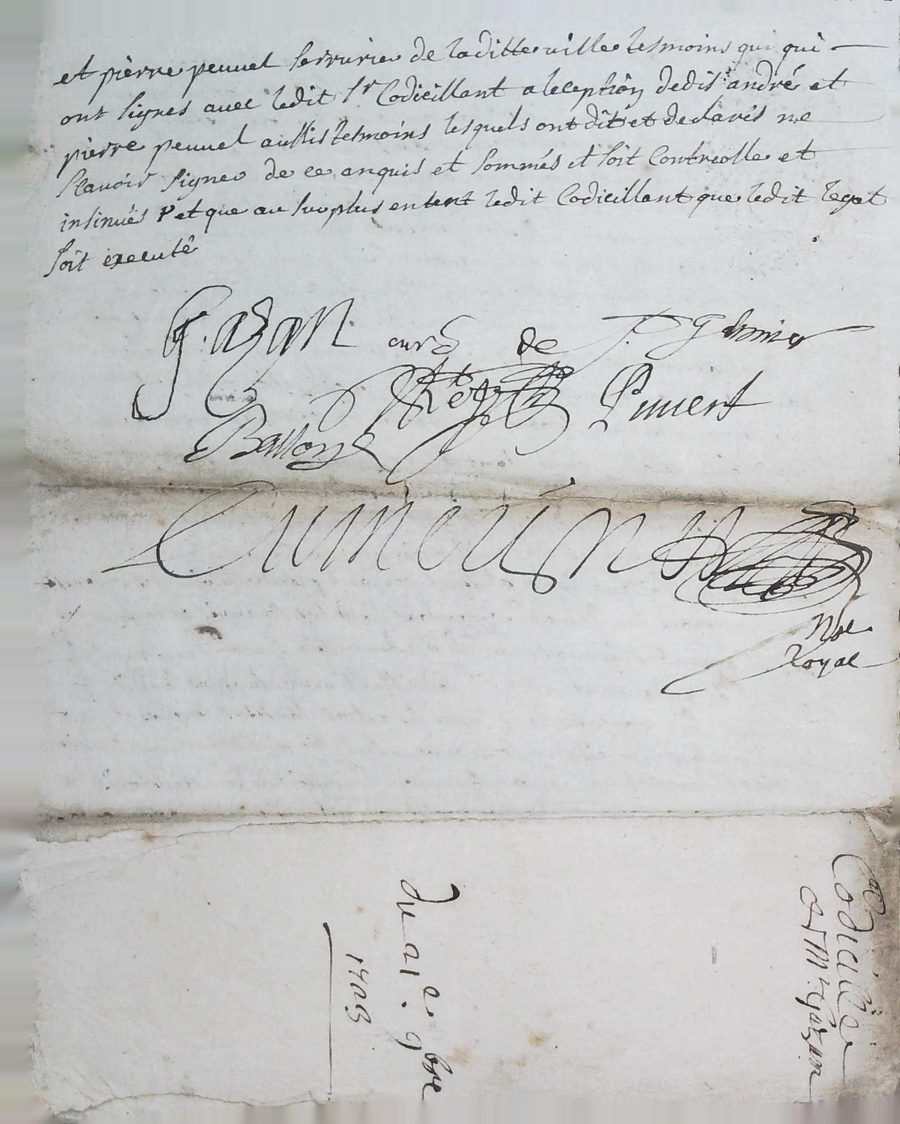 et pierre peuuel serrurie de laditte ville tesmoins qui qui
ont signes auec ledit sr Codicillant a leception dedis andré et
pierre peuuel aussis tesmoins lesquels ont dit et declarés ne
scauoir signer de ce anquis et sommés et soit Controlle et
insinués et que au surplus entent ledit Codicillant que ledit legat
soit executé
G. azan curé de
Piniert
Dumeuin
Nre
Royal
Codicille
de Mr Gazan
du 21e 9bre
1703